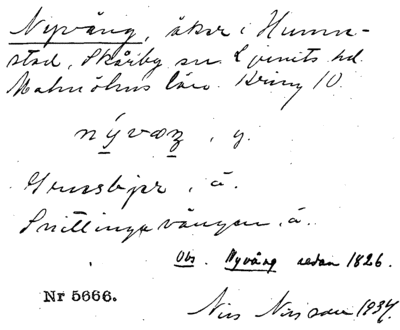 Nyvång, åker i Humm-
stad, Skårby sn. Ljunits hd.
Malmöhus län. Kring 10.
nývæȥ, y.
å.
Snittingavången, å.
Obs. Nyvång sedan 1826.
Nr 5666.
Nils Nilsson 1934.